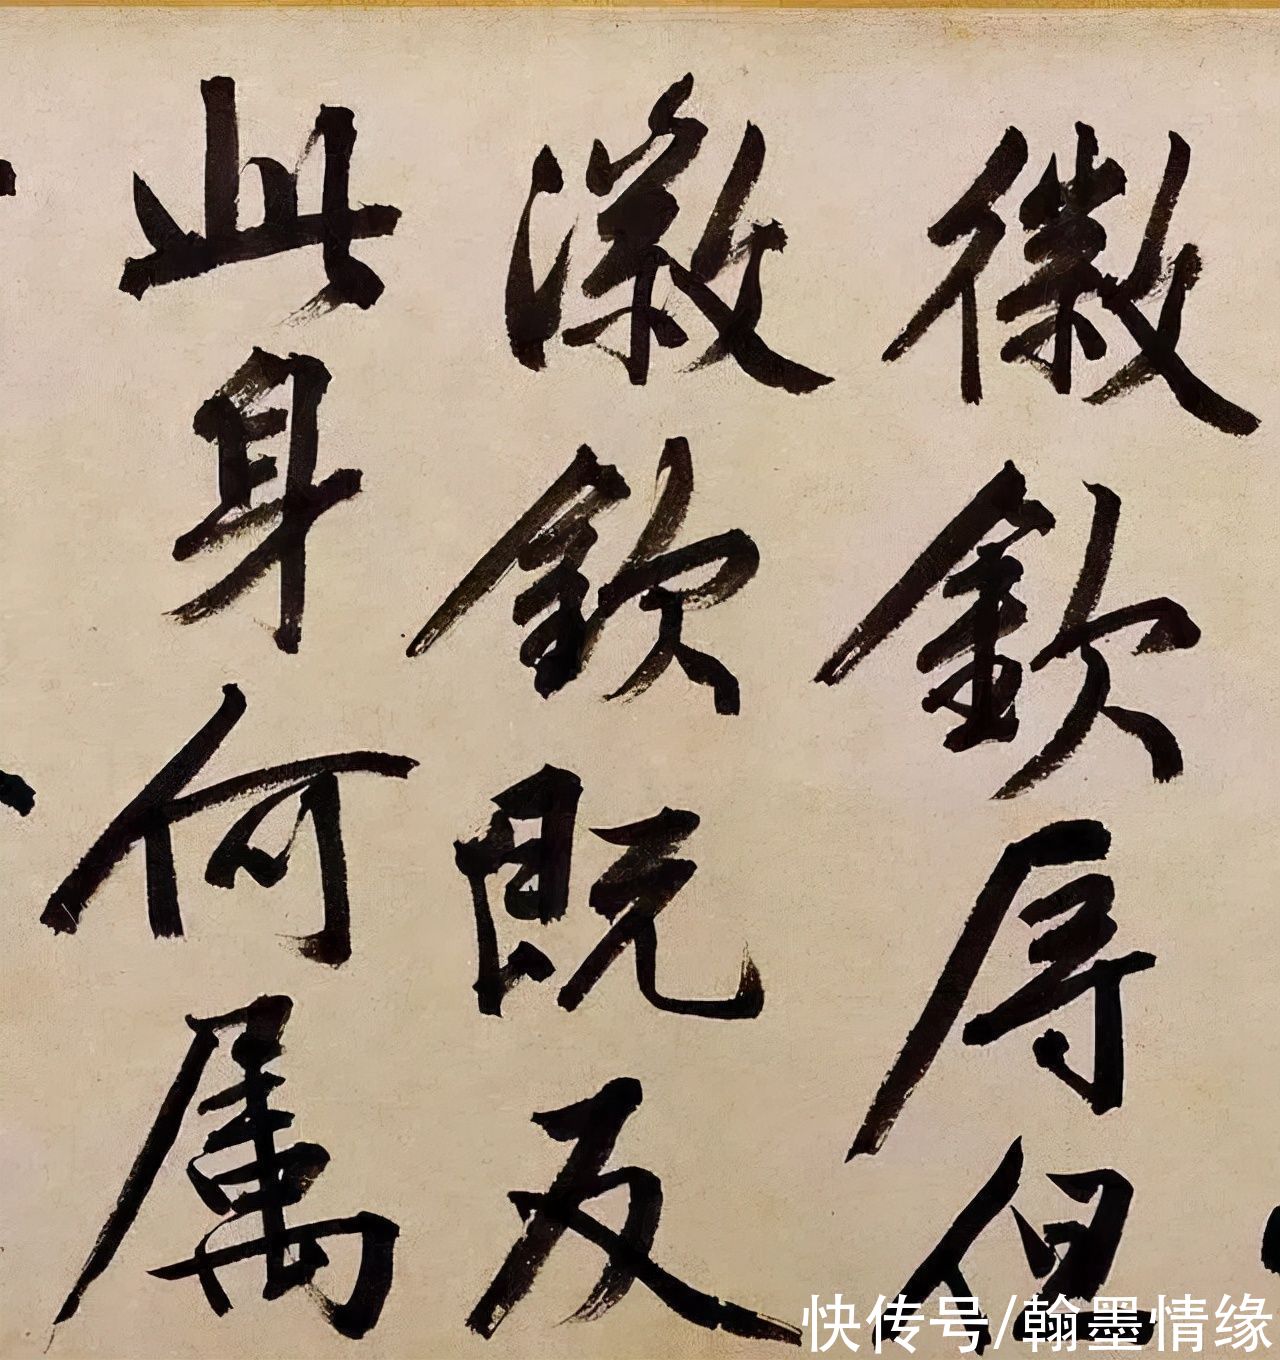 徽欽辱但
徽欽既反
此身何属
快传号/翰墨情缘